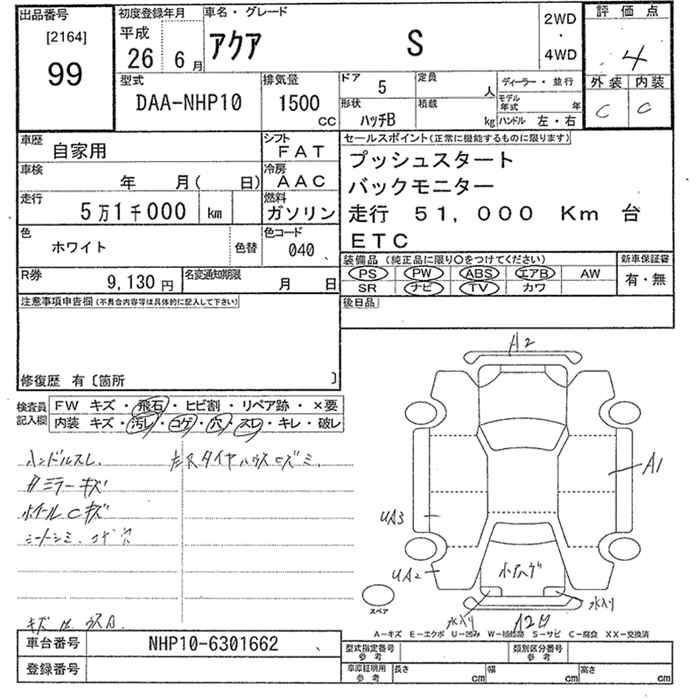 出品番号
[2164]
99
初度登録年月
平成
26 6月
車名・グレード
アクア S
2WD
・
4WD
評価点
4
外装 内装
C C
型式
DAA-NHP10
排気量
1500
CC
ドア
5
定員
人
形状
ハッチB
積載
kg
ディーラー・並行
モデル年式 年
ハンドル 左・右
車歴
自家用
シフト
FAT
車検
年 月( 日)
冷房
AAC
走行
5万1千000 km
燃料
ガソリン
色
ホワイト
色替
色コード
040
R券
9,130円
名変通知期限
月 日
セールスポイント(正常に機能するものに限ります)
プッシュスタート
バックモニター
走行 51,000 Km 台
ETC
装備品 (純正品に限り○をつけてください)
PS PW ABS エアB AW
SR ナビ TV カワ
新車保証書
有・無
後日品
注意事項申告欄(不具合内容等は具体的に記入して下さい)
修復歴 有〔箇所 〕
検査員記入欄
FW キズ・飛石・ヒビ割・リペア跡・×要
内装 キズ・汚レ・コゲ・穴・スレ・キレ・破レ
ハンドルスレ
ホイールCキズ
A2
A1
UA3
UA2
水入り
水入り
スペア
A-キズ E-エクボ U-凹み W-補修跡 S-サビ C-腐食 XX-交換済
車台番号
NHP10-6301662
登録番号
型式指定番号
参考
類別区分番号
参考
車庫証明用
参考
長さ cm
幅 cm
高さ cm